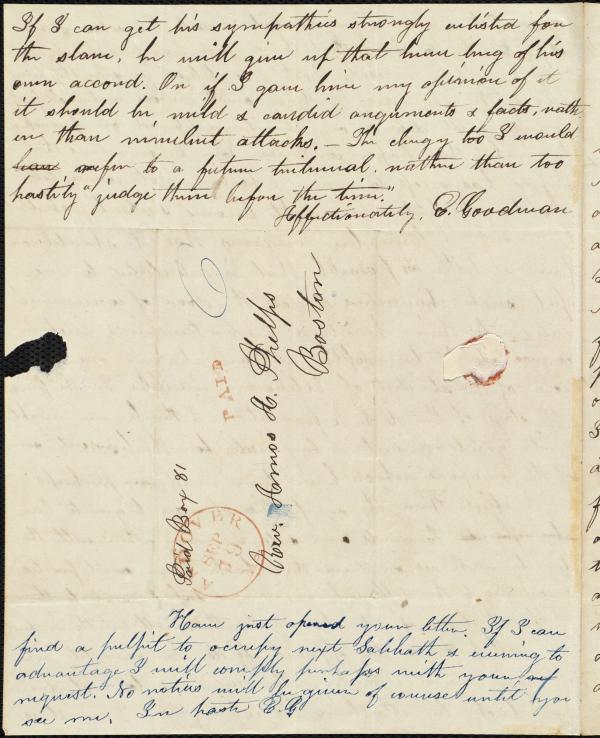 If I can get his sympathies strongly enlisted for
the slave, he will give up that hum bug of his
own accord. Or if I gave him my opinion of it
it should be mild & candid arguments & facts, rath
er than virulent attacks. — The clergy too I would
refer to a future tribunal, rather than too
hastily "judge them before the time."
Affectionately, E. Goodman
PAID
Rev. Amos A. Phelps
Boston
Paid Box 81
SEP
Have just opened your letter. If I can
find a pulpit to occupy next Sabbath & evening to
advantage I will comply perhaps with your
request. No notices will be given of course until you
see me. In haste E.G